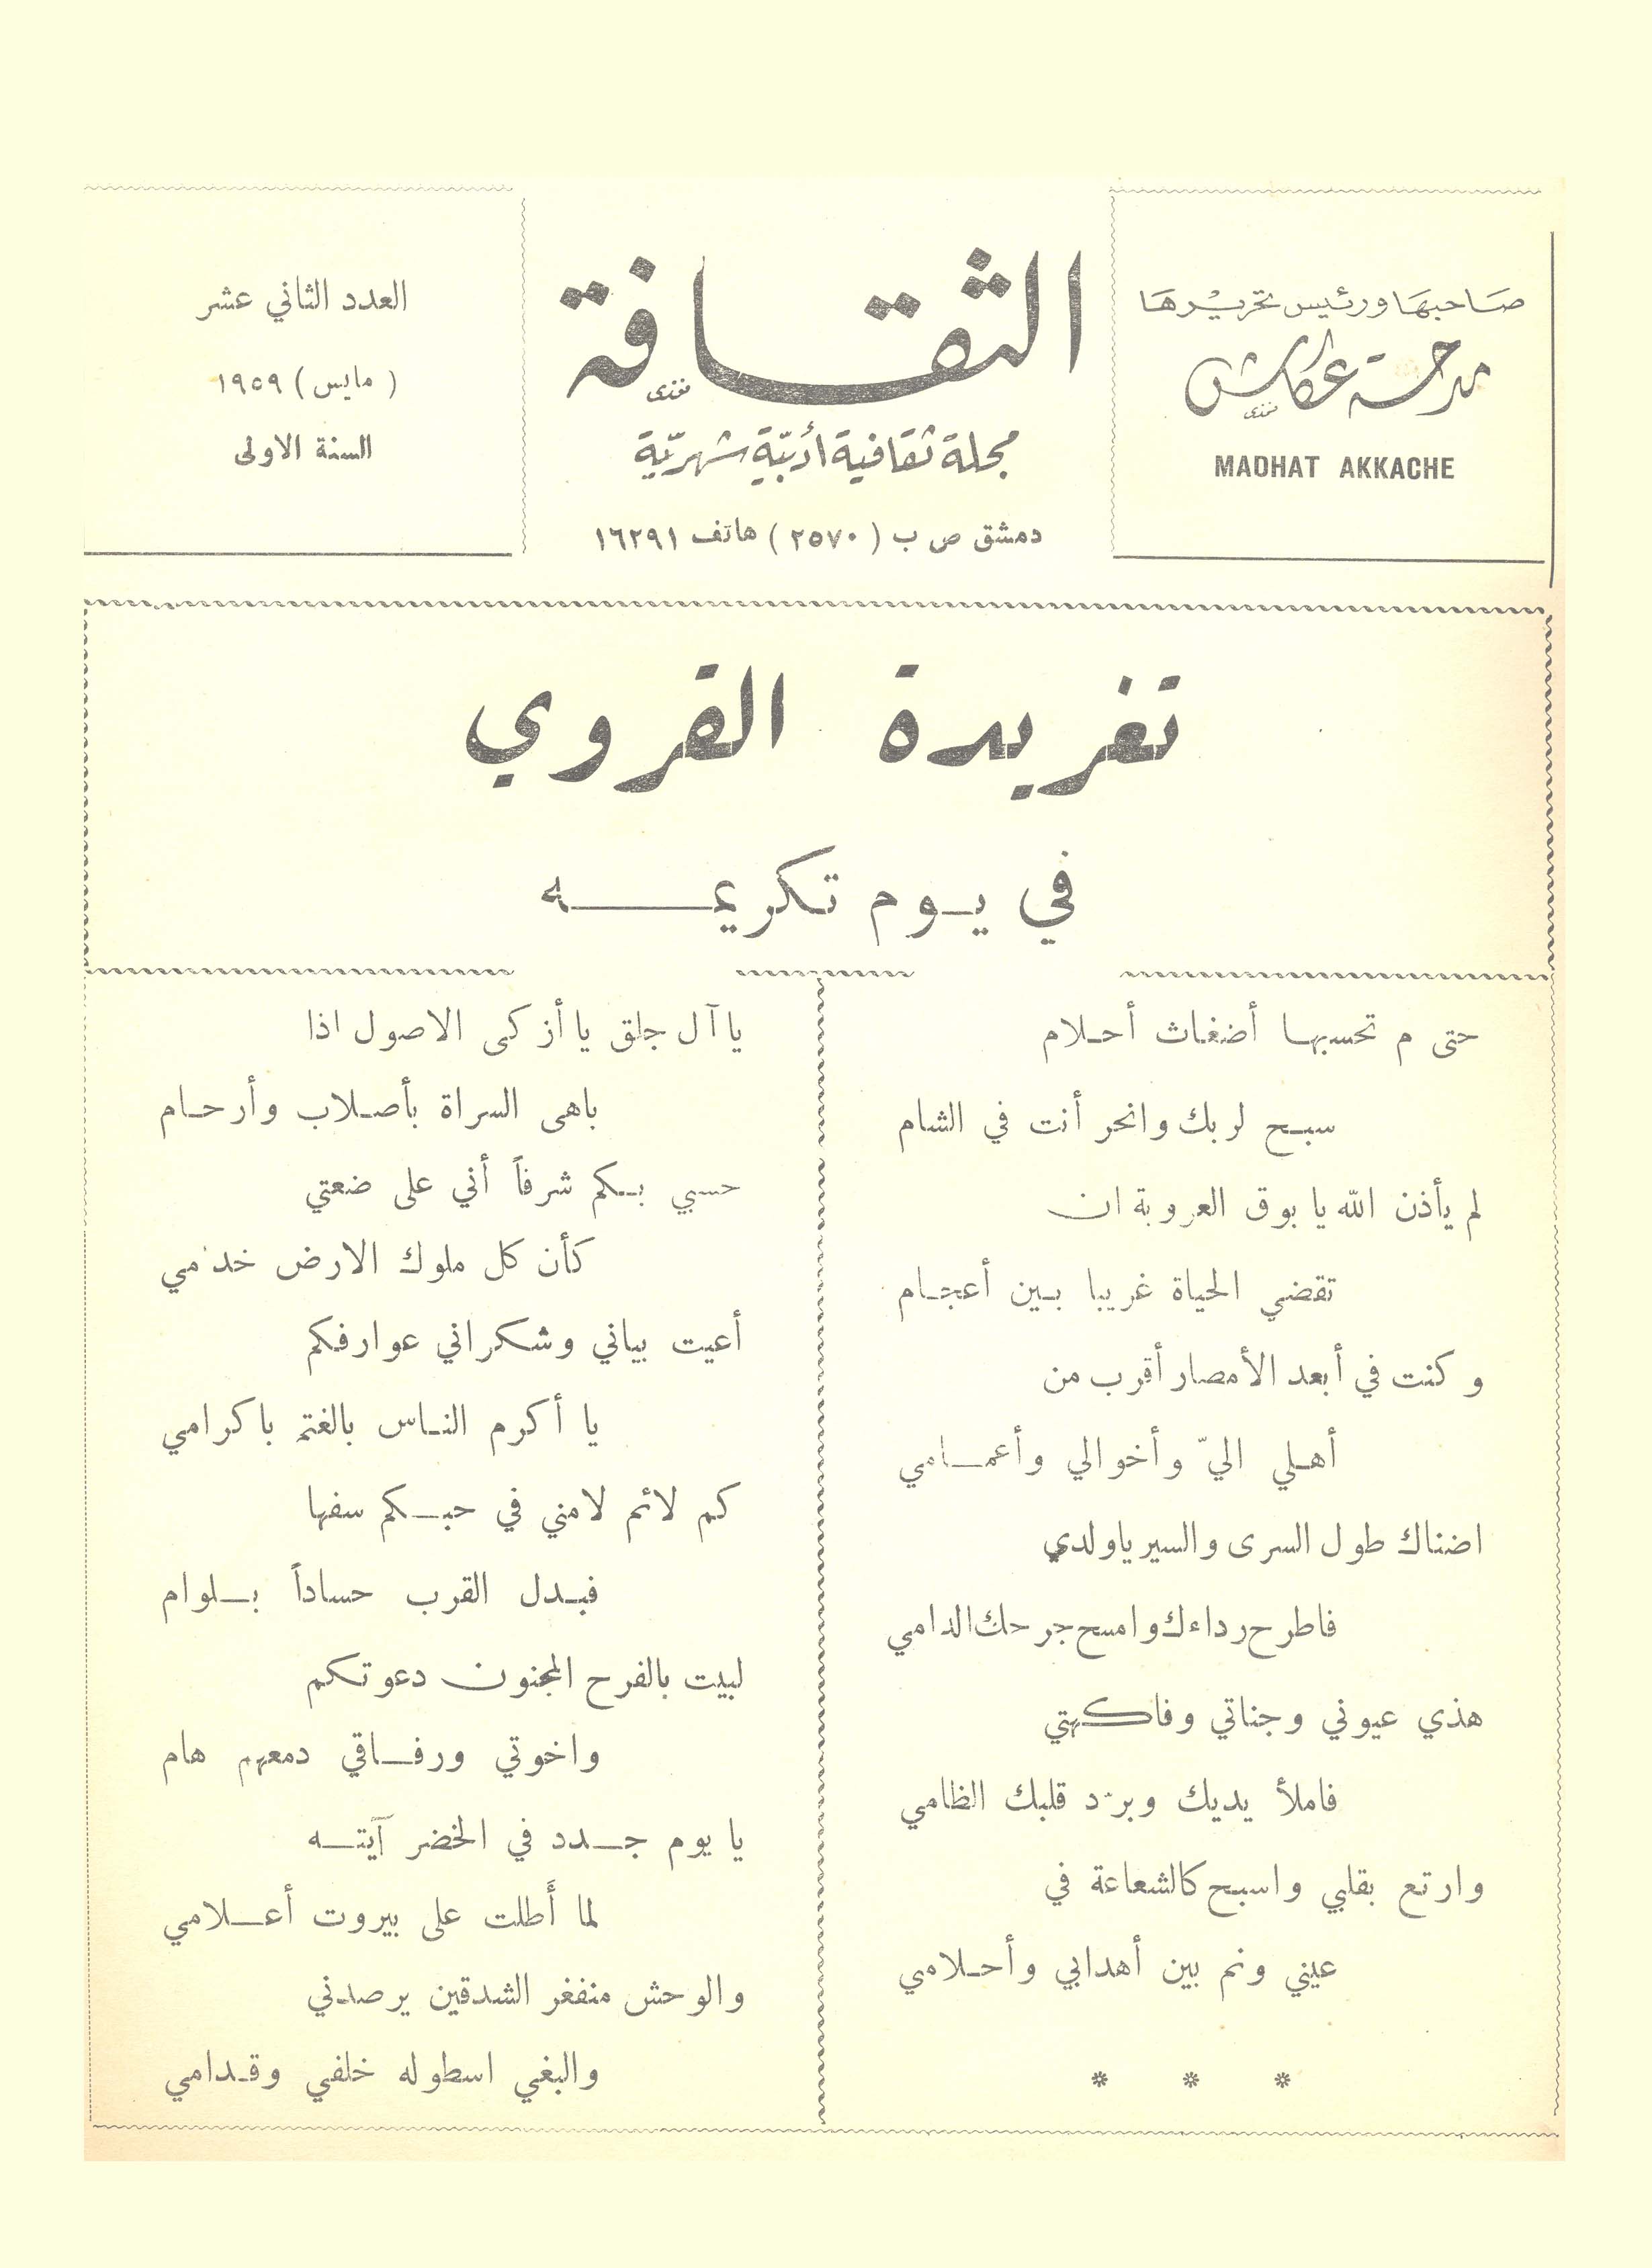 صاحبها ورئيس تحريرها
مدحت عكاش
MADHAT AKKACHE
الثقافة
مجلة ثقافية أدبيّة شهريّة
دمشق ص ب (٢٥٧٠) هاتف ١٦٢٩١
العدد الثاني عشر
(مايس) ١٩٥٩
السنة الاولى
تغريدة القروي
في يوم تكريمه
حتى م تحسبها أضغاث أحلام
سبح لربك وانحر أنت في الشام
لم يأذن الله يا بوق العروبة ان
تقضي الحياة غريبا بين أعجام
وكنت في أبعد الأمصار أقرب من
أهلي اليّ وأخوالي وأعمامي
اضناك طول السرى والسير ياولدي
فاطرح رداءك وامسح جرحك الدامي
هذي عيوني وجناتي وفاكهتي
فاملأ يديك وبرّد قلبك الظامي
وارتع بقلبي واسبح كالشعاعة في
عيني ونم بين أهدابي وأحلامي
* * *
يا آل جلق يا أزكى الاصول اذا
باهى السراة بأصلاب وأرحام
حسبي بكم شرفاً أني على ضعتي
كأن كل ملوك الارض خدّمي
أعيت بياني وشكراني عوارفكم
يا أكرم الناس بالغتم باكرامي
كم لائم لامني في حبكم سفها
فبدل القرب حساداً بلوام
لبيت بالفرح المجنون دعوتكم
واخوتي ورفاقي دمعهم هام
يا يوم جدد في الخضر آيته
لما أطلت على بيروت أعلامي
والوحش منفغر الشدقين يرصدني
والبغي اسطوله خلفي وقدامي